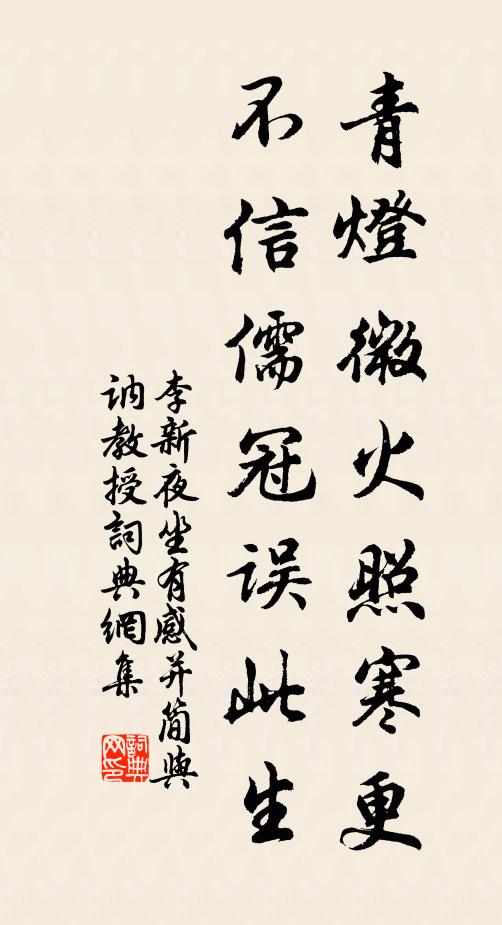 青燈微火照寒更
不信儒冠误此生
李新夜坐有感并简與
讷教授詞典網集
詞典网印